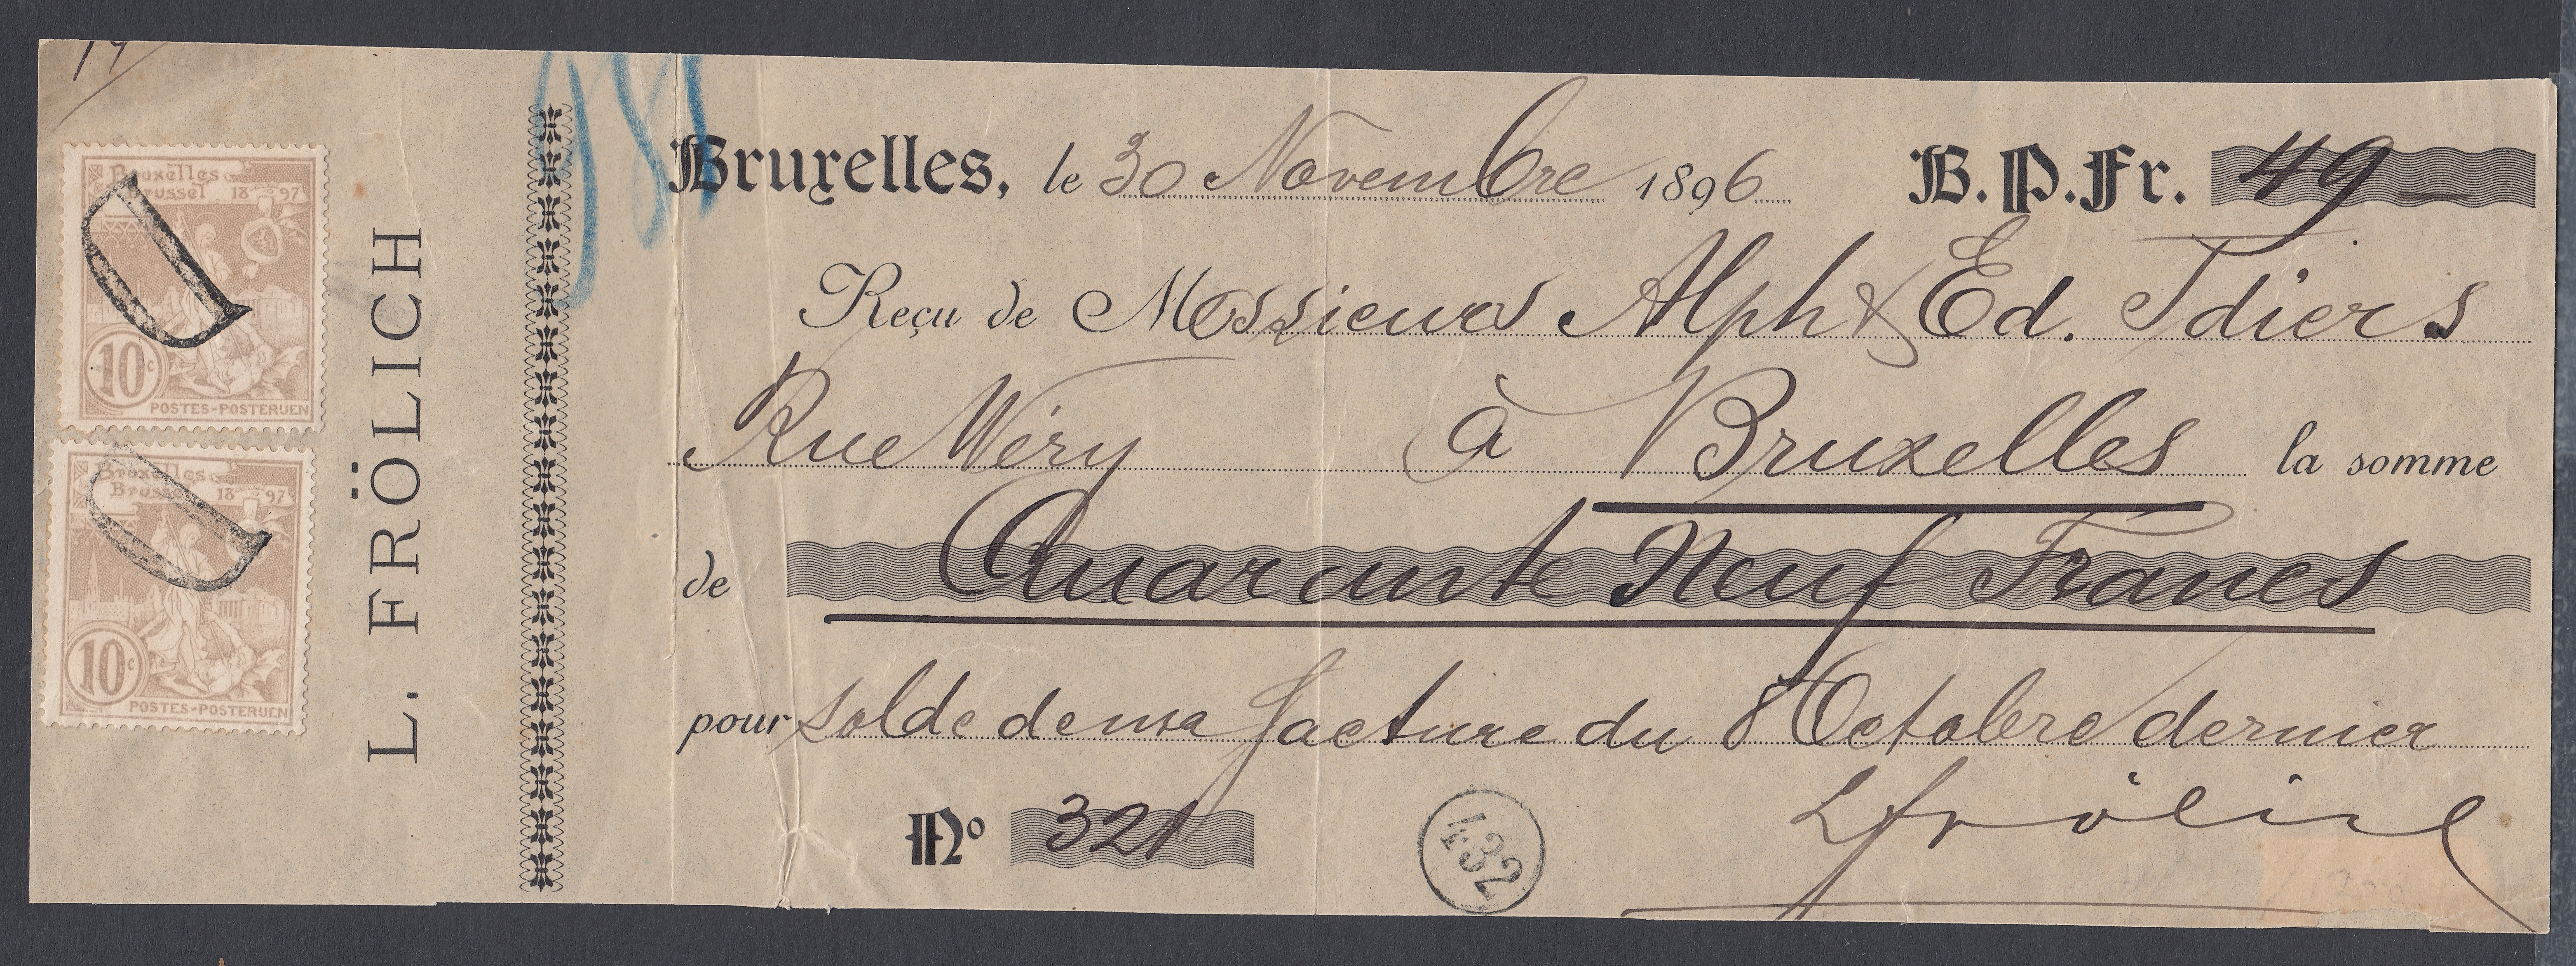 19
Bruxelles
Brussel 1897
10c
POSTES-POSTERIJEN
Bruxelles
Brussel 1897
10c
POSTES-POSTERIJEN
L. FRÖLICH
Bruxelles, le 30 Novembre 1896 B.P.Fr. 49 —
Reçu de Messieurs Alph & Ed. Tdiers
Rue Wéry à Bruxelles la somme
de Quarante Neuf Francs
pour solde de ma facture du 8 Octobre dernier
No 321
432
L Frölich